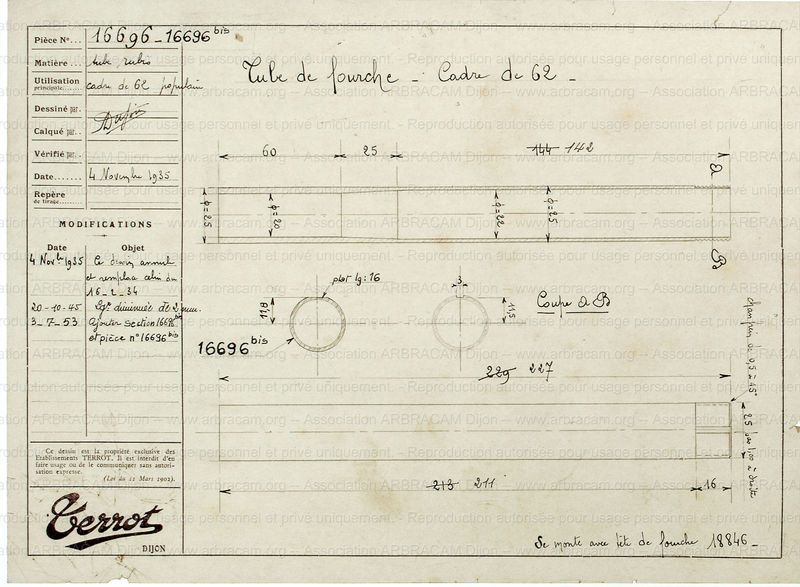 Pièce N°... 16696_16696 bis
Matière... tube rubis
Utilisation
principale........ cadre de 62 populaire
Dessiné par.
Calqué par.
Vérifié par.
Date....... 4 Novembre 1935
Repère
de tirage........
MODIFICATIONS
Date Objet
4 Novbre 1935 Ce dessin annule
et remplace celui du
16_2_34
20-10-45 Lgr diminuée de 2 mm.
3_7_53 Ajouter section 16696 bis
et pièce n° 16696 bis
Ce dessin est la propriété exclusive des
Etablissements TERROT. Il est interdit d'en
faire usage ou de le communiquer sans autori-
sation expresse.
(Loi du 11 Mars 1902).
Terrot
DIJON
Tube de fourche _ Cadre de 62 _
60 25 144 142
A
ϕ=25 ϕ=20 ϕ=22 ϕ=25
B
plat lg: 16
3
11,8 11,5
Coupe A B
16696 bis
229 227
chanfrein de 0,5 à 45°
25 pas 1,00 à droite
213 211 16
Se monte avec tête de fourche 18846 _
Association ARBRACAM Dijon -- www.arbracam.org -- Reproduction autorisée pour usage personnel et privé uniquement.